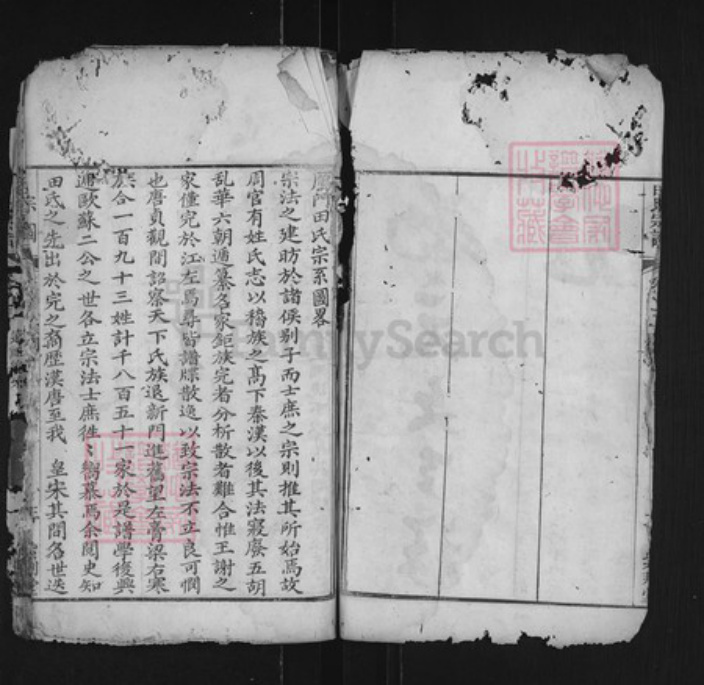 阿田氏宗系圖畧
宗法之建昉於諸侯别子而士庶之宗則推其所始焉故
周官有姓氏志以稽族之高下秦漢以後其法寢廢五胡
亂華六朝遁纂名家鉅族完者分析散者難合惟王謝之
家僅完於江左焉尋皆譜牒散逸以致宗法不立良可憫
也唐貞觀間詔察天下氏族退新門進舊望左膏梁右寒
族合一百九十三姓計千八百五十一家於是譜學復興
迪歐蘇二公之世各立宗法士庶徃〻嚮慕焉余閱史知
田氏之先出於完之裔歷漢唐至我 皇宋其間名世迭
宗圖
FamilySearch